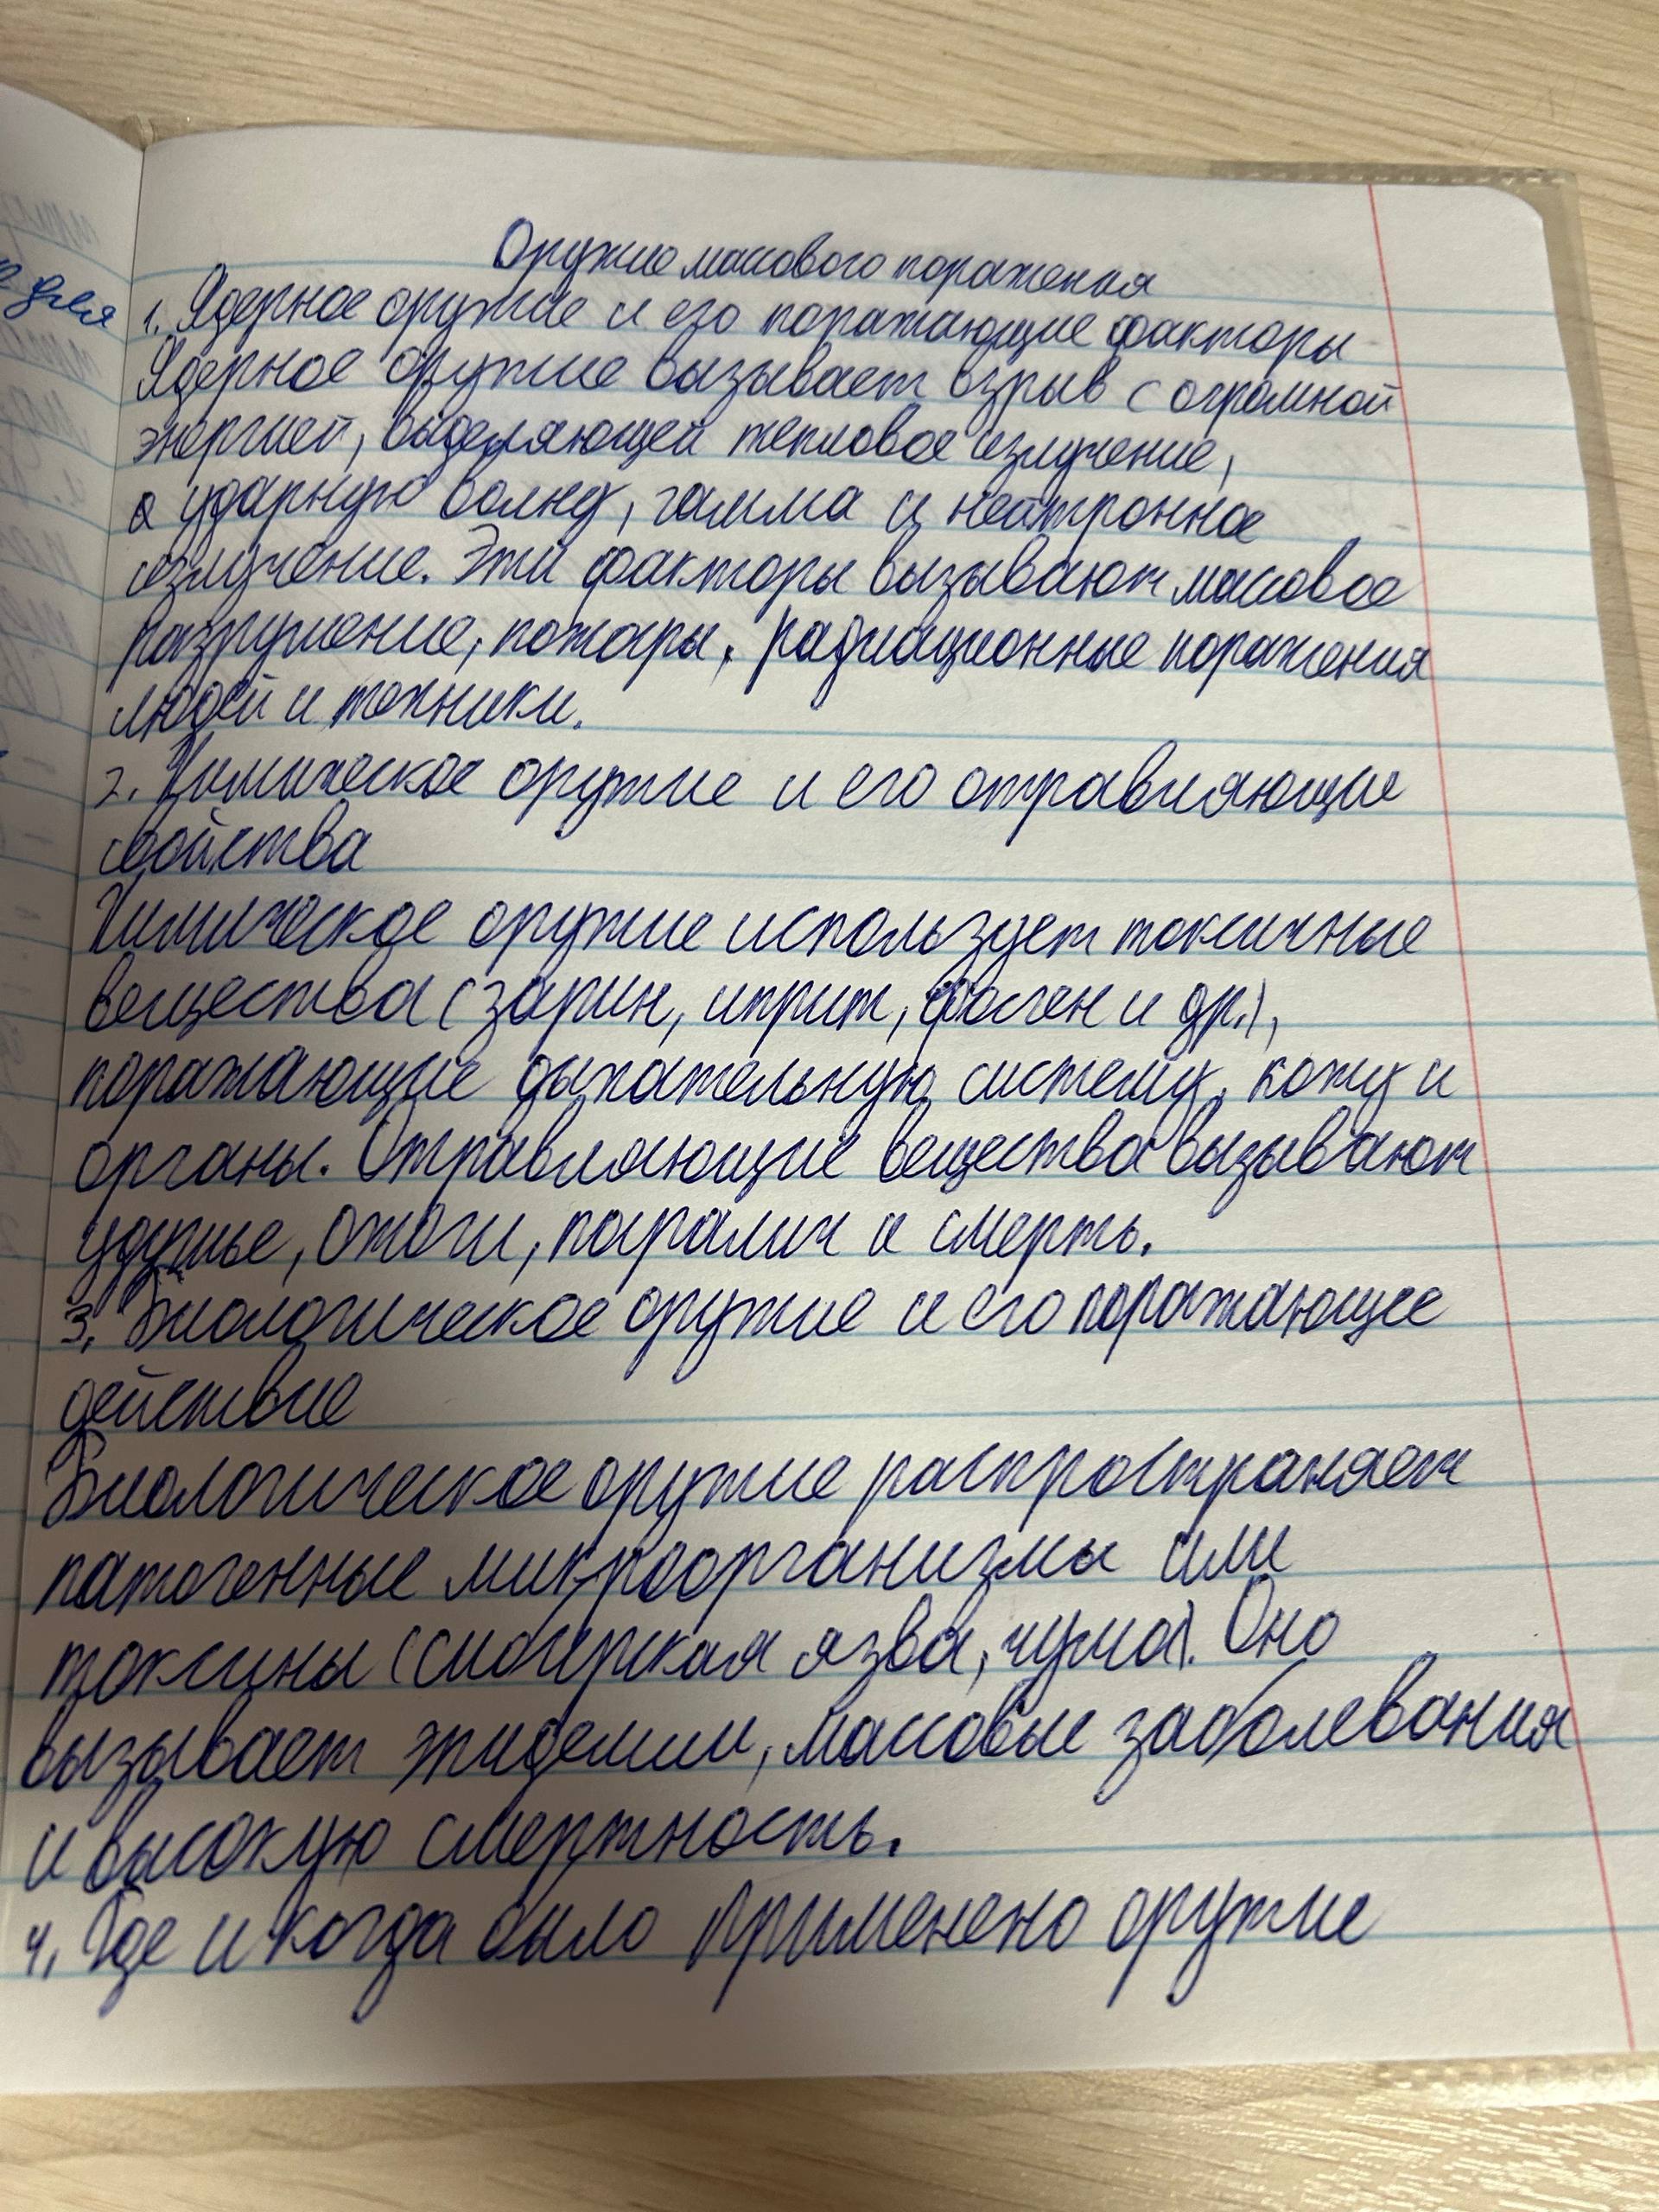 Оружие массового поражения
1. Ядерное оружие и его поражающие факторы
Ядерное оружие вызывает взрыв с огромной
энергией, выделяющей тепловое излучение,
ударную волну, гамма и нейтронное
излучение. Эти факторы вызывают массовое
разрушение, пожары, радиационные поражения
людей и техники.
2. Химическое оружие и его отравляющие
свойства
Химическое оружие использует токсичные
вещества (зарин, иприт, фосген и др.),
поражающие дыхательную систему, кожу и
органы. Отравляющие вещества вызывают
удушье, ожоги, паралич и смерть.
3. Биологическое оружие и его поражающее
действие
Биологическое оружие распространяет
патогенные микроорганизмы или
токсины (сибирская язва, чума). Оно
вызывает эпидемии, массовые заболевания
и высокую смертность.
4. Где и когда было применено оружие